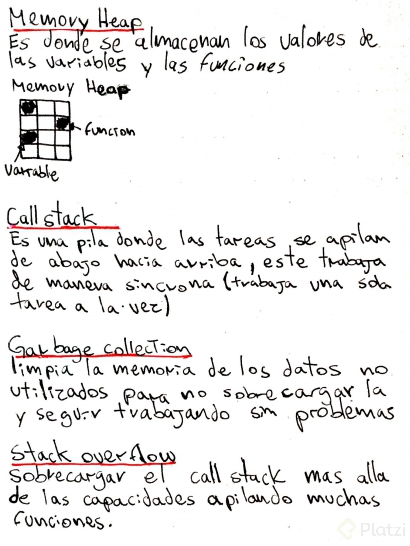 Memory Heap
Es donde se almacenan los valores de
las variables y las funciones
Memory Heap
funcion
Variable
Call stack
Es una pila donde las tareas se apilan
de abajo hacia arriba, este trabaja
de manera sincrona (trabaja una sola
tarea a la vez)
Garbage collection
limpia la memoria de los datos no
utilizados para no sobrecargar la
y seguir trabajando sin problemas
Stack overflow
sobrecargar el call stack mas alla
de las capacidades apilando muchas
funciones.
Platzi